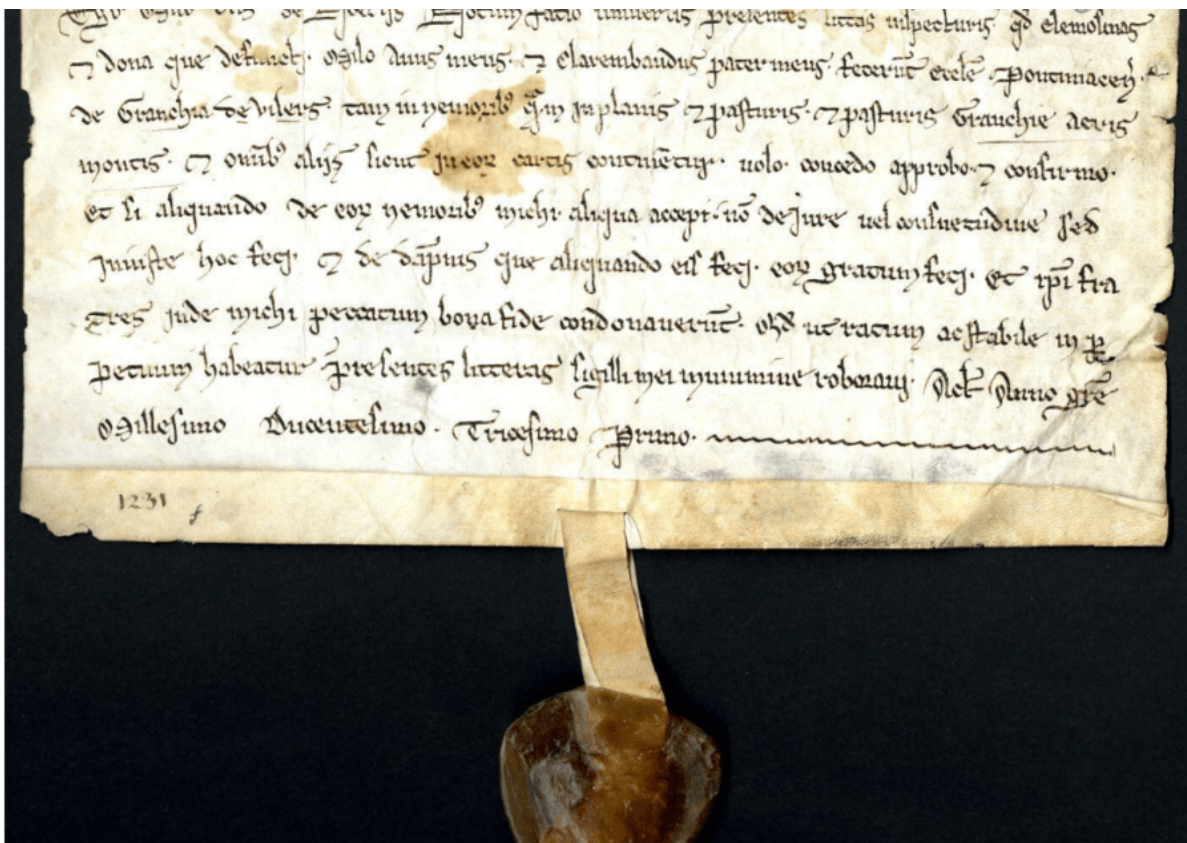 Ego Milo dn̄s de Notum facio universis presentes litt̄as inspecturis. qd̄ elemosinas
⁊ dona que defuncti. Milo Avus meus. ⁊ Clarembaudus pater meus. fecerūt eccl̄ie Pontiniaceñ.
de Granchia de vilers. tam in nemorib⁹ q̄m in planis ⁊ pasturis. ⁊ pasturis Granchie acris
montis. ⁊ om̄ib⁹ aliis sicut in eoꝝ cartis continētur. volo. concedo approbo. ⁊ confirmo.
Et si aliquando de eoꝝ nemorib⁹ michi aliqua accepi. nō de Jure vel consuetudine sed
iniuste hoc feci. ⁊ de dāpnis que aliquando eis feci. eoꝝ gratum feci. et ip̄i fra
tres inde michi peccatum bona fide condonaverūt. Qd̄ ut ratum ac stabile in ꝑ
petuum habeatur p̄sentes litteras sigilli mei munimine roboravi. Act̄ Anno gr̄e
Millesimo Ducentesimo. Tricesimo Primo.
1231